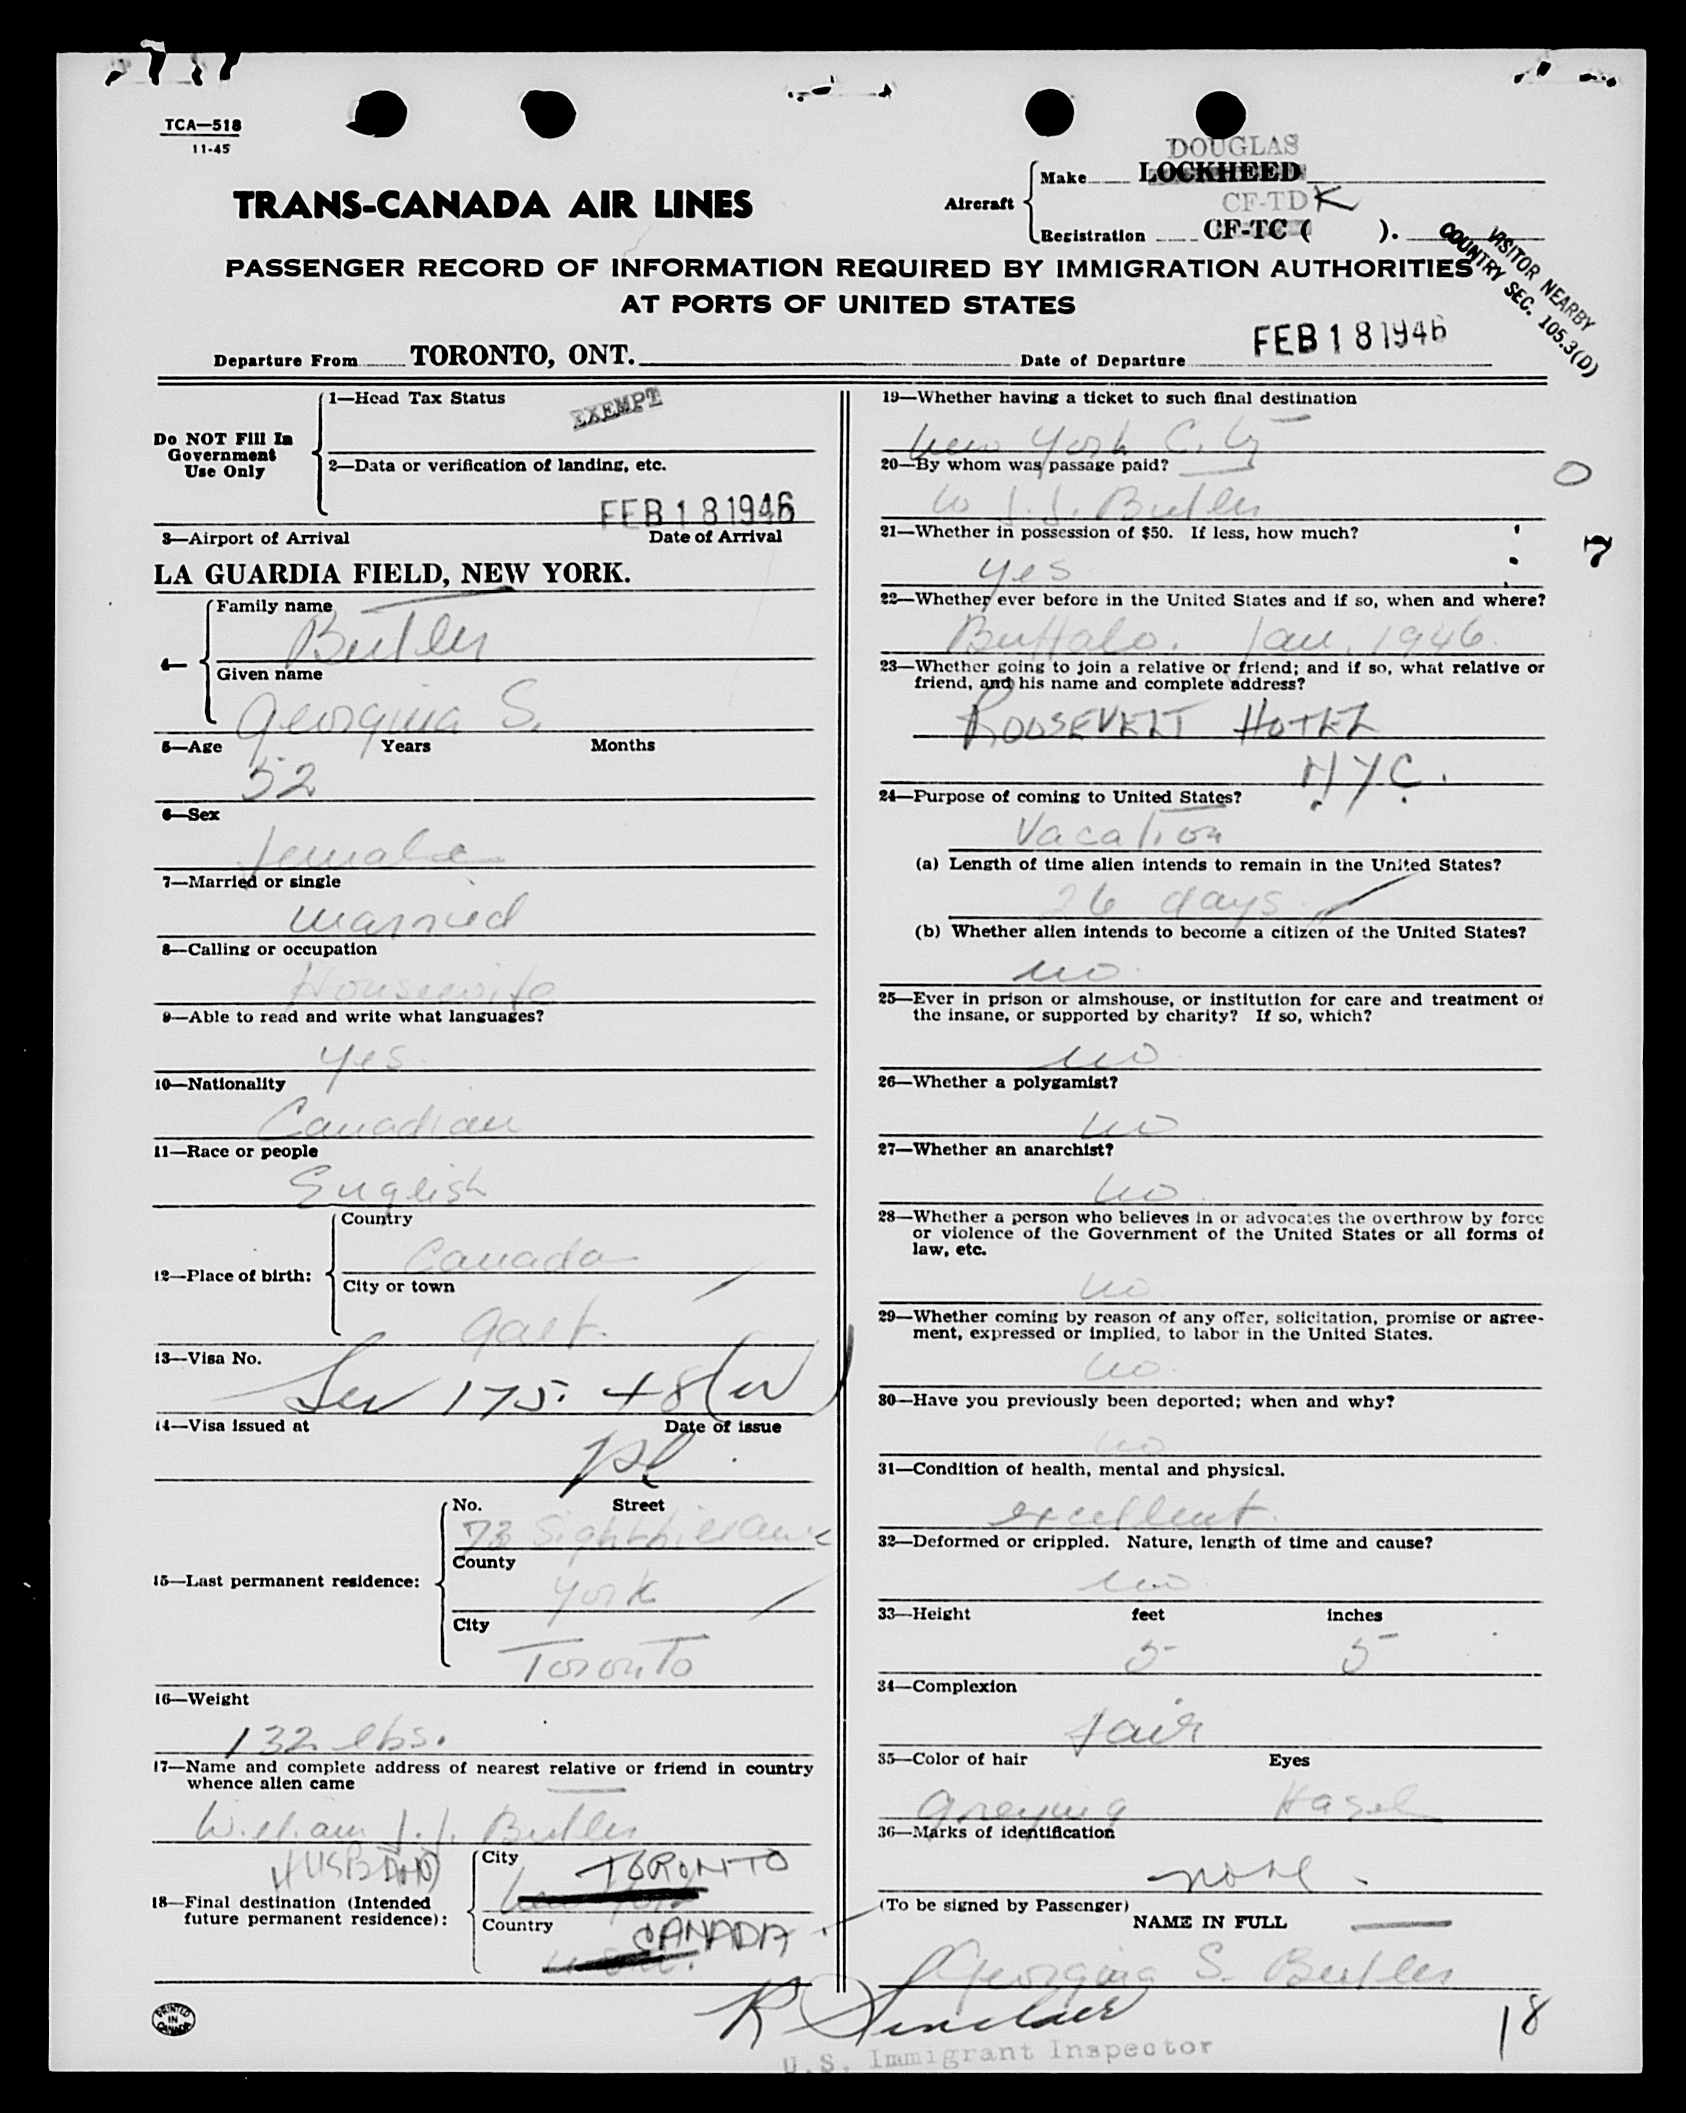 TCA—518
11-45
DOUGLAS
Make LOCKHEED
TRANS-CANADA AIR LINES
Aircraft
CF-TD K
Registration CF-TC ( ).
VISITOR NEARBY
COUNTRY SEC. 105.3(D)
PASSENGER RECORD OF INFORMATION REQUIRED BY IMMIGRATION AUTHORITIES
AT PORTS OF UNITED STATES
Departure From TORONTO, ONT. Date of Departure FEB 18 1946
Do NOT Fill In
Government
Use Only
1—Head Tax Status EXEMPT
2—Data or verification of landing, etc.
FEB 18 1946
3—Airport of Arrival Date of Arrival
LA GUARDIA FIELD, NEW YORK.
4—
Family name
Butler
Given name
Georgina S.
5—Age Years Months
52
6—Sex
female
7—Married or single
married
8—Calling or occupation
Housewife
9—Able to read and write what languages?
yes
10—Nationality
Canadian
11—Race or people
English
12—Place of birth:
Country
Canada
City or town
Galt.
13—Visa No.
Sec 175. 48(w)
14—Visa issued at Date of issue
15—Last permanent residence:
No. Street
73 Sighthill Ave
County
York
City
Toronto
16—Weight
132 lbs.
17—Name and complete address of nearest relative or friend in country
whence alien came
William J.J. Butler
HUSBAND
18—Final destination (Intended
future permanent residence):
City TORONTO
Country CANADA
19—Whether having a ticket to such final destination
New York City
20—By whom was passage paid?
W J.J. Butler
21—Whether in possession of $50. If less, how much?
yes
22—Whether ever before in the United States and if so, when and where?
Buffalo. Jan. 1946.
23—Whether going to join a relative or friend; and if so, what relative or
friend, and his name and complete address?
ROOSEVELT HOTEL
NYC.
24—Purpose of coming to United States?
Vacation
(a) Length of time alien intends to remain in the United States?
26 days.
(b) Whether alien intends to become a citizen of the United States?
no.
25—Ever in prison or almshouse, or institution for care and treatment of
the insane, or supported by charity? If so, which?
no
26—Whether a polygamist?
no
27—Whether an anarchist?
no.
28—Whether a person who believes in or advocates the overthrow by force
or violence of the Government of the United States or all forms of
law, etc.
no
29—Whether coming by reason of any offer, solicitation, promise or agree-
ment, expressed or implied, to labor in the United States.
no.
30—Have you previously been deported; when and why?
no
31—Condition of health, mental and physical.
excellent.
32—Deformed or crippled. Nature, length of time and cause?
no
33—Height feet inches
5 5
34—Complexion
fair
35—Color of hair Eyes
Greying Hasel
36—Marks of identification
none
(To be signed by Passenger)
NAME IN FULL
Georgina S. Butler
R Sinclair
U.S. Immigrant Inspector
18
0
7
PRINTED
IN
CANADA